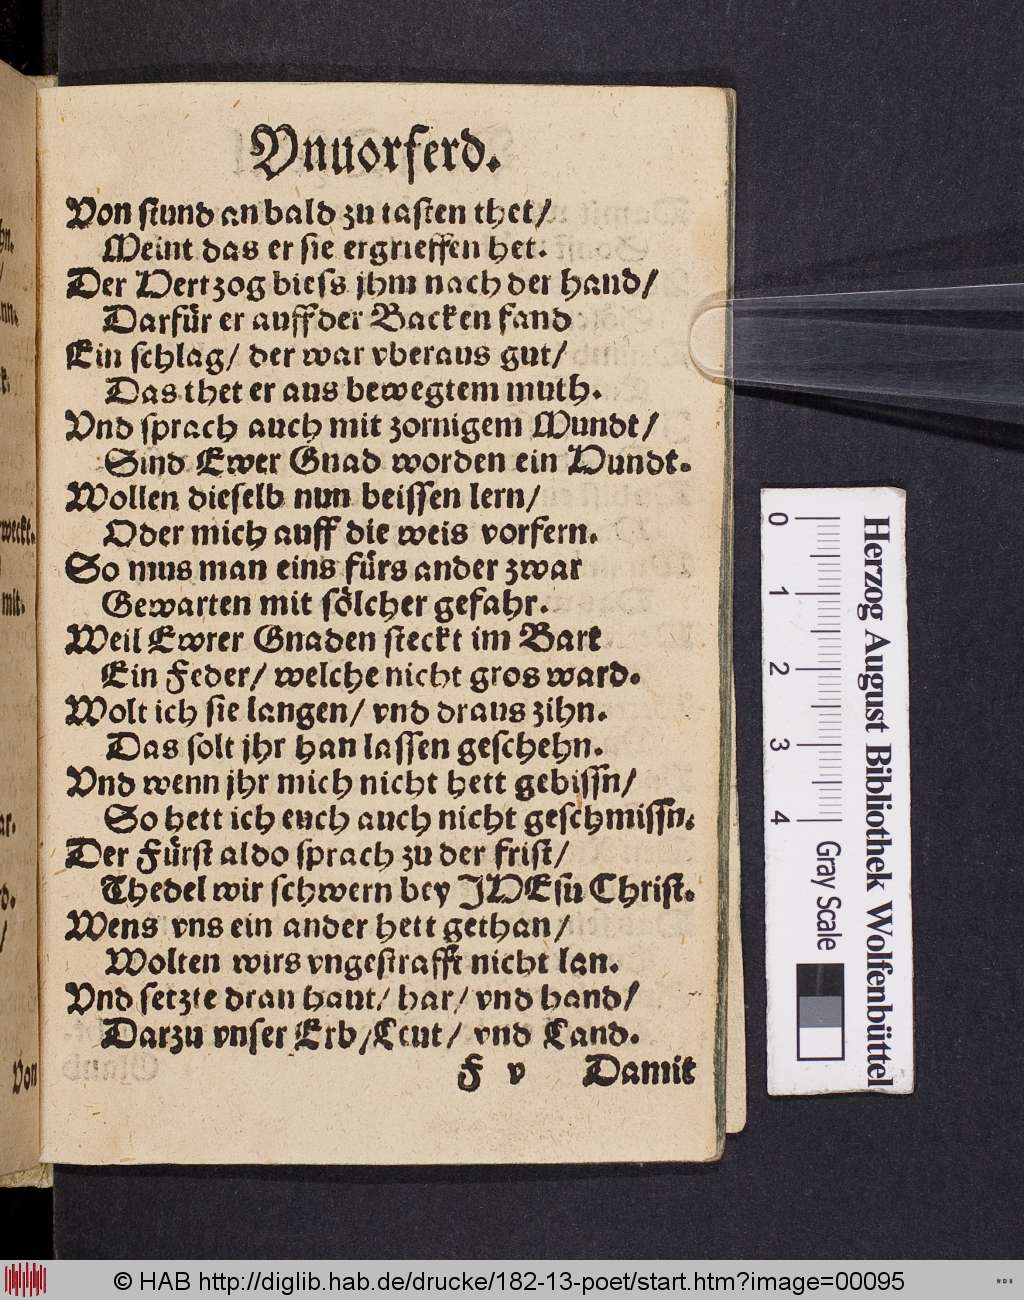 Vnuorferd.
Von stund an bald zu tasten thet/
Meint das er sie ergrieffen het.
Der Hertzog biess jhm nach der hand/
Darfür er auff der Backen fand
Ein schlag/ der war vberaus gut/
Das thet er aus bewegtem muth.
Vnd sprach auch mit zornigem Mundt/
Sind Ewer Gnad worden ein Hundt.
Wollen dieselb nun beissen lern/
Oder mich auff die weis vorfern.
So mus man eins fürs ander zwar
Gewarten mit sölcher gefahr.
Weil Ewrer Gnaden steckt im Bart
Ein Feder/ welche nicht gros ward.
Wolt ich sie langen/ vnd draus zihn.
Das solt jhr han lassen geschehn.
Vnd wenn jhr mich nicht hett gebissn/
So hett ich euch auch nicht geschmissn.
Der Fürst aldo sprach zu der frist/
Thedel wir schwern bey JHEsu Christ.
Wens vns ein ander hett gethan/
Wolten wirs vngestrafft nicht lan.
Vnd setzte dran haut/ har/ vnd hand/
Darzu vnser Erb/ Leut/ vnd Land.
F v Damit
Von
weckt.
mit.
0 1 2 3 4
Gray Scale
Herzog August Bibliothek Wolfenbüttel
© HAB http://diglib.hab.de/drucke/182-13-poet/start.htm?image=00095